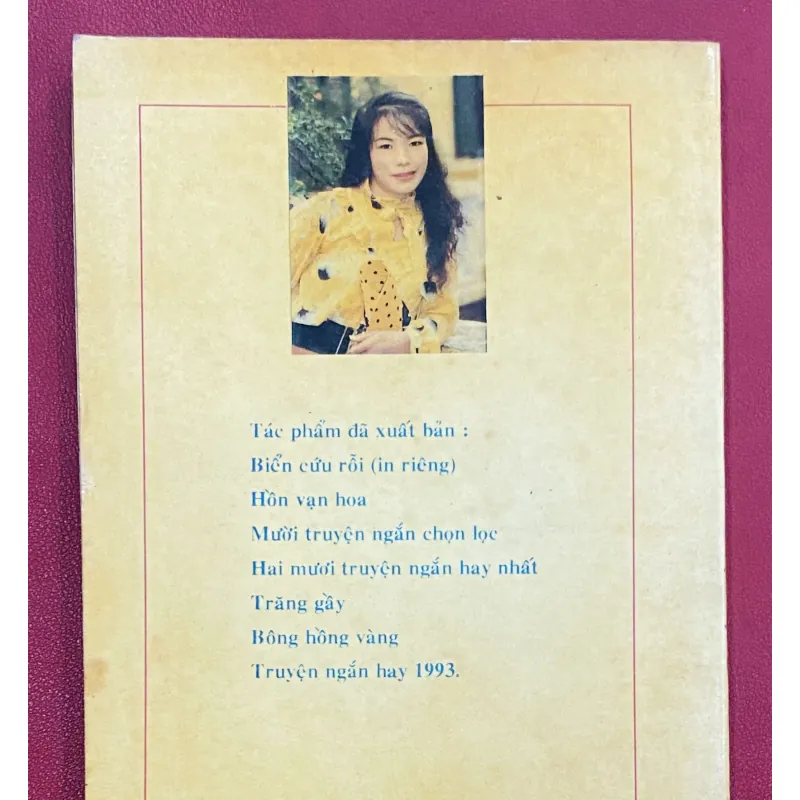 Tác phẩm đã xuất bản :
Biển cứu rỗi (in riêng)
Hồn vạn hoa
Mười truyện ngắn chọn lọc
Hai mươi truyện ngắn hay nhất
Trăng gầy
Bông hồng vàng
Truyện ngắn hay 1993.